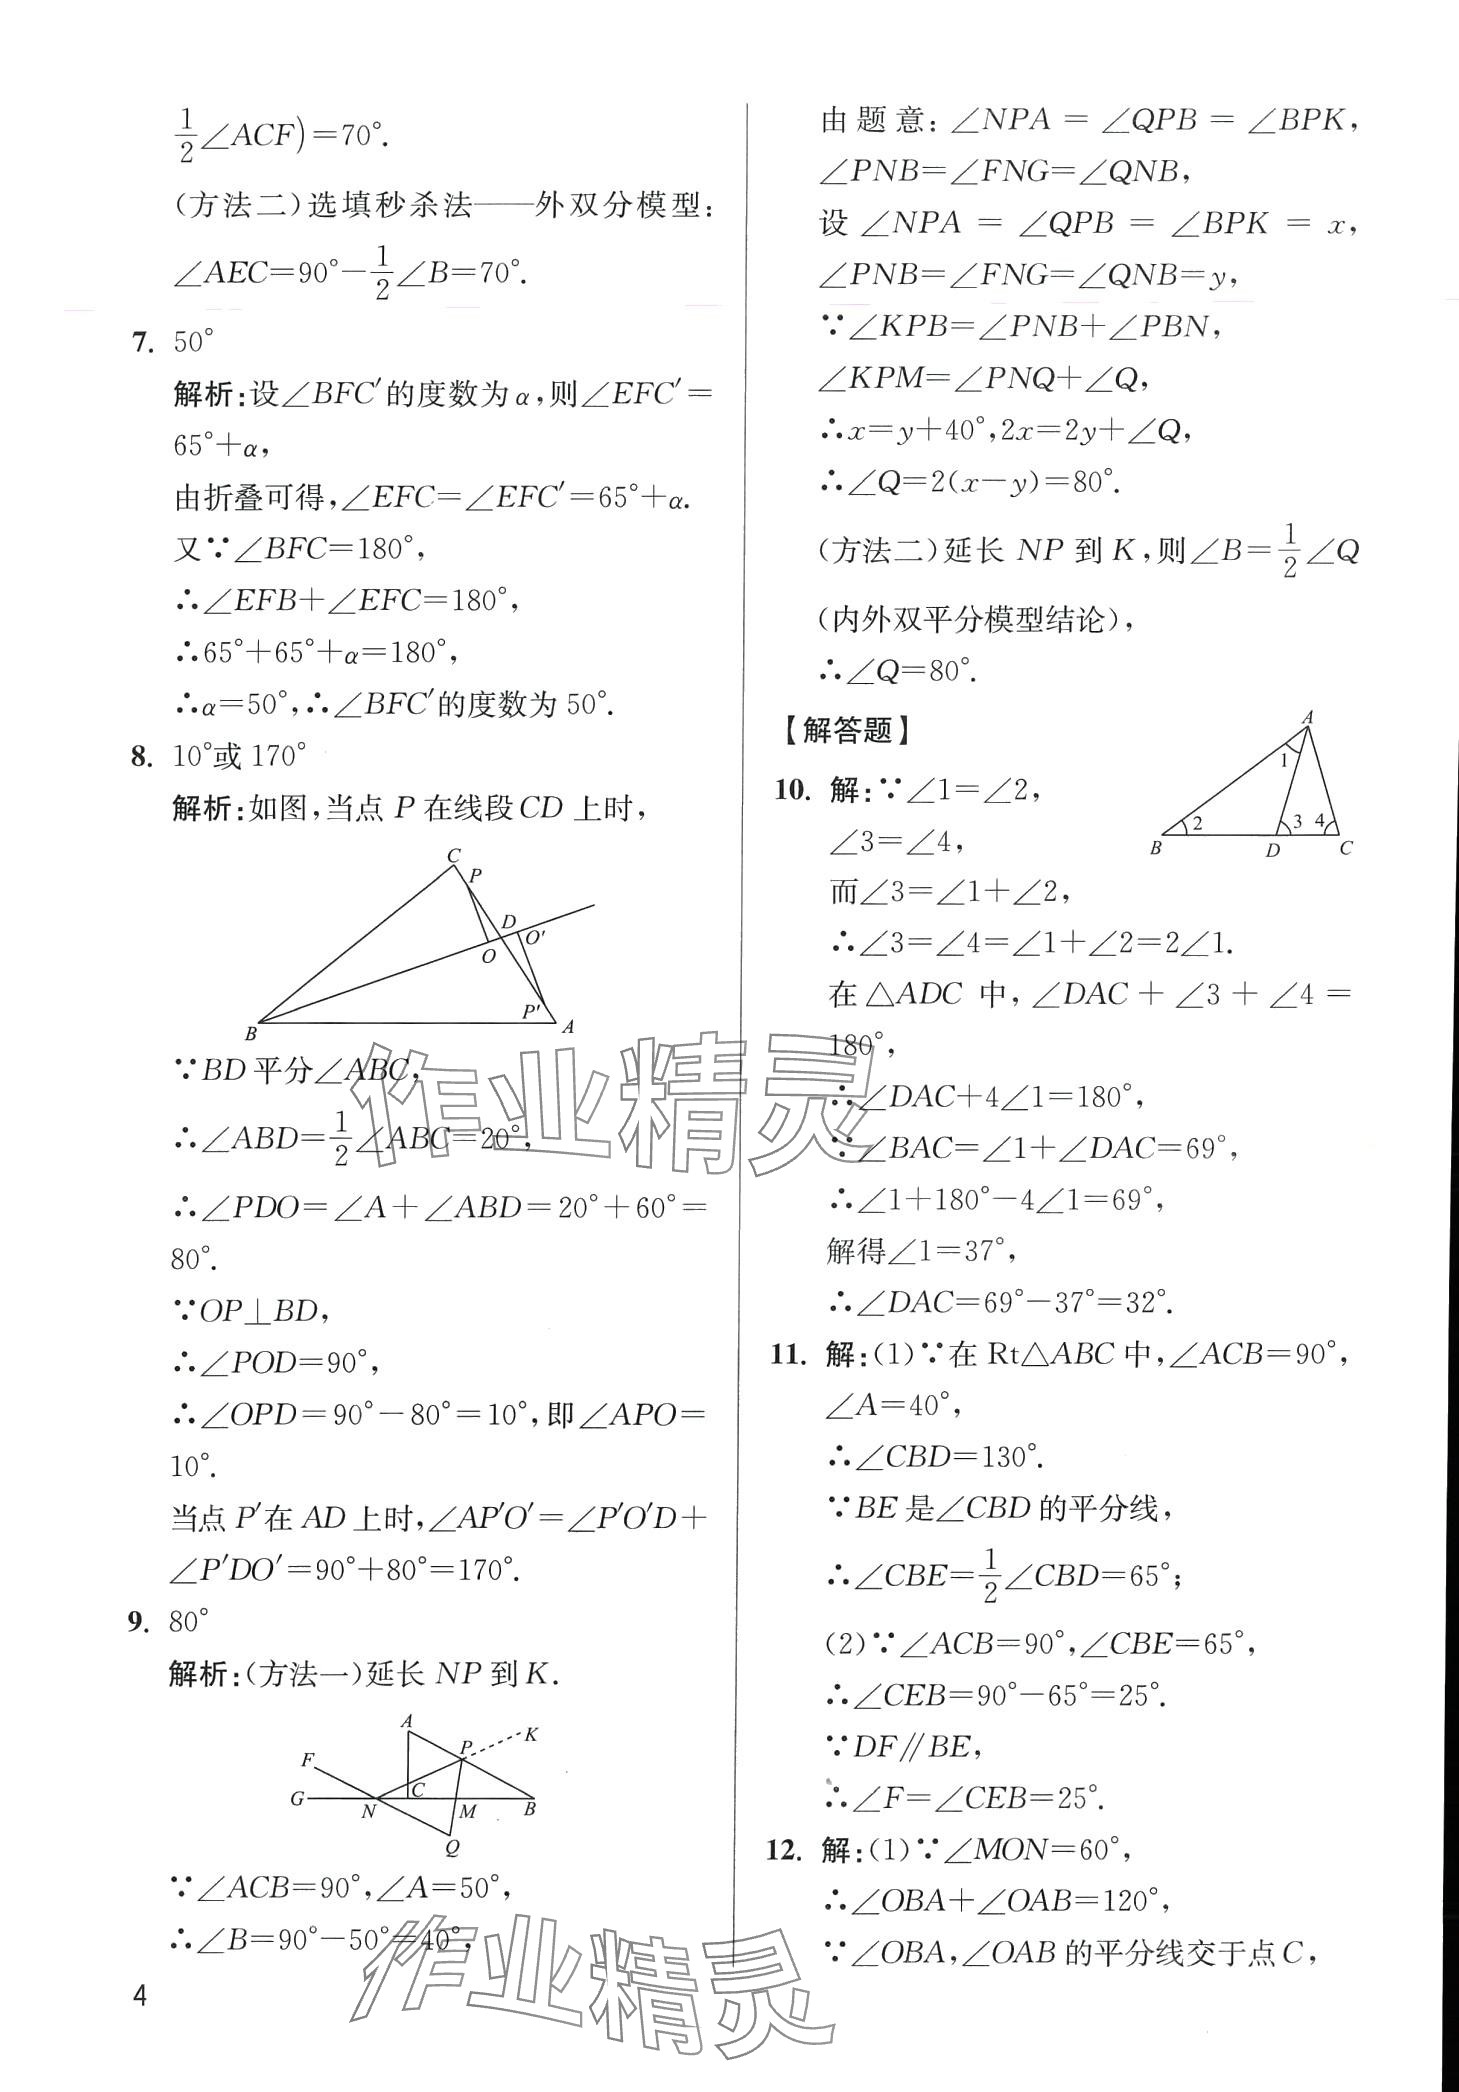 1/2∠ACF)=70°.
(方法二)选填秒杀法——外双分模型:
∠AEC=90°-1/2∠B=70°.
7. 50°
解析:设∠BFC′的度数为α,则∠EFC′=
65°+α,
由折叠可得,∠EFC=∠EFC′=65°+α.
又∵∠BFC=180°,
∴∠EFB+∠EFC=180°,
∴65°+65°+α=180°,
∴α=50°,∴∠BFC′的度数为50°.
8. 10°或170°
解析:如图,当点P在线段CD上时,
C
P
D
O
O′
P′
B
A
∵BD平分∠ABC,
∴∠ABD=1/2∠ABC=20°,
∴∠PDO=∠A+∠ABD=20°+60°=
80°.
∵OP⊥BD,
∴∠POD=90°,
∴∠OPD=90°-80°=10°,即∠APO=
10°.
当点P′在AD上时,∠AP′O′=∠P′O′D+
∠P′DO′=90°+80°=170°.
9. 80°
解析:(方法一)延长NP到K.
A
K
P
F
C
G
N
M
B
Q
∵∠ACB=90°,∠A=50°,
∴∠B=90°-50°=40°,
4
由题意:∠NPA=∠QPB=∠BPK,
∠PNB=∠FNG=∠QNB,
设∠NPA=∠QPB=∠BPK=x,
∠PNB=∠FNG=∠QNB=y,
∵∠KPB=∠PNB+∠PBN,
∠KPM=∠PNQ+∠Q,
∴x=y+40°,2x=2y+∠Q,
∴∠Q=2(x-y)=80°.
(方法二)延长NP到K,则∠B=1/2∠Q
(内外双平分模型结论),
∴∠Q=80°.
【解答题】
10. 解:∵∠1=∠2,
∠3=∠4,
而∠3=∠1+∠2,
∴∠3=∠4=∠1+∠2=2∠1.
在△ADC中,∠DAC+∠3+∠4=
180°,
∴∠DAC+4∠1=180°,
∵∠BAC=∠1+∠DAC=69°,
∴∠1+180°-4∠1=69°,
解得∠1=37°,
∴∠DAC=69°-37°=32°.
A
1
2
3
4
B
D
C
11. 解:(1)∵在Rt△ABC中,∠ACB=90°,
∠A=40°,
∴∠CBD=130°.
∵BE是∠CBD的平分线,
∴∠CBE=1/2∠CBD=65°;
(2)∵∠ACB=90°,∠CBE=65°,
∴∠CEB=90°-65°=25°.
∵DF∥BE,
∴∠F=∠CEB=25°.
12. 解:(1)∵∠MON=60°,
∴∠OBA+∠OAB=120°,
∵∠OBA,∠OAB的平分线交于点C,
作业精灵
作业精灵